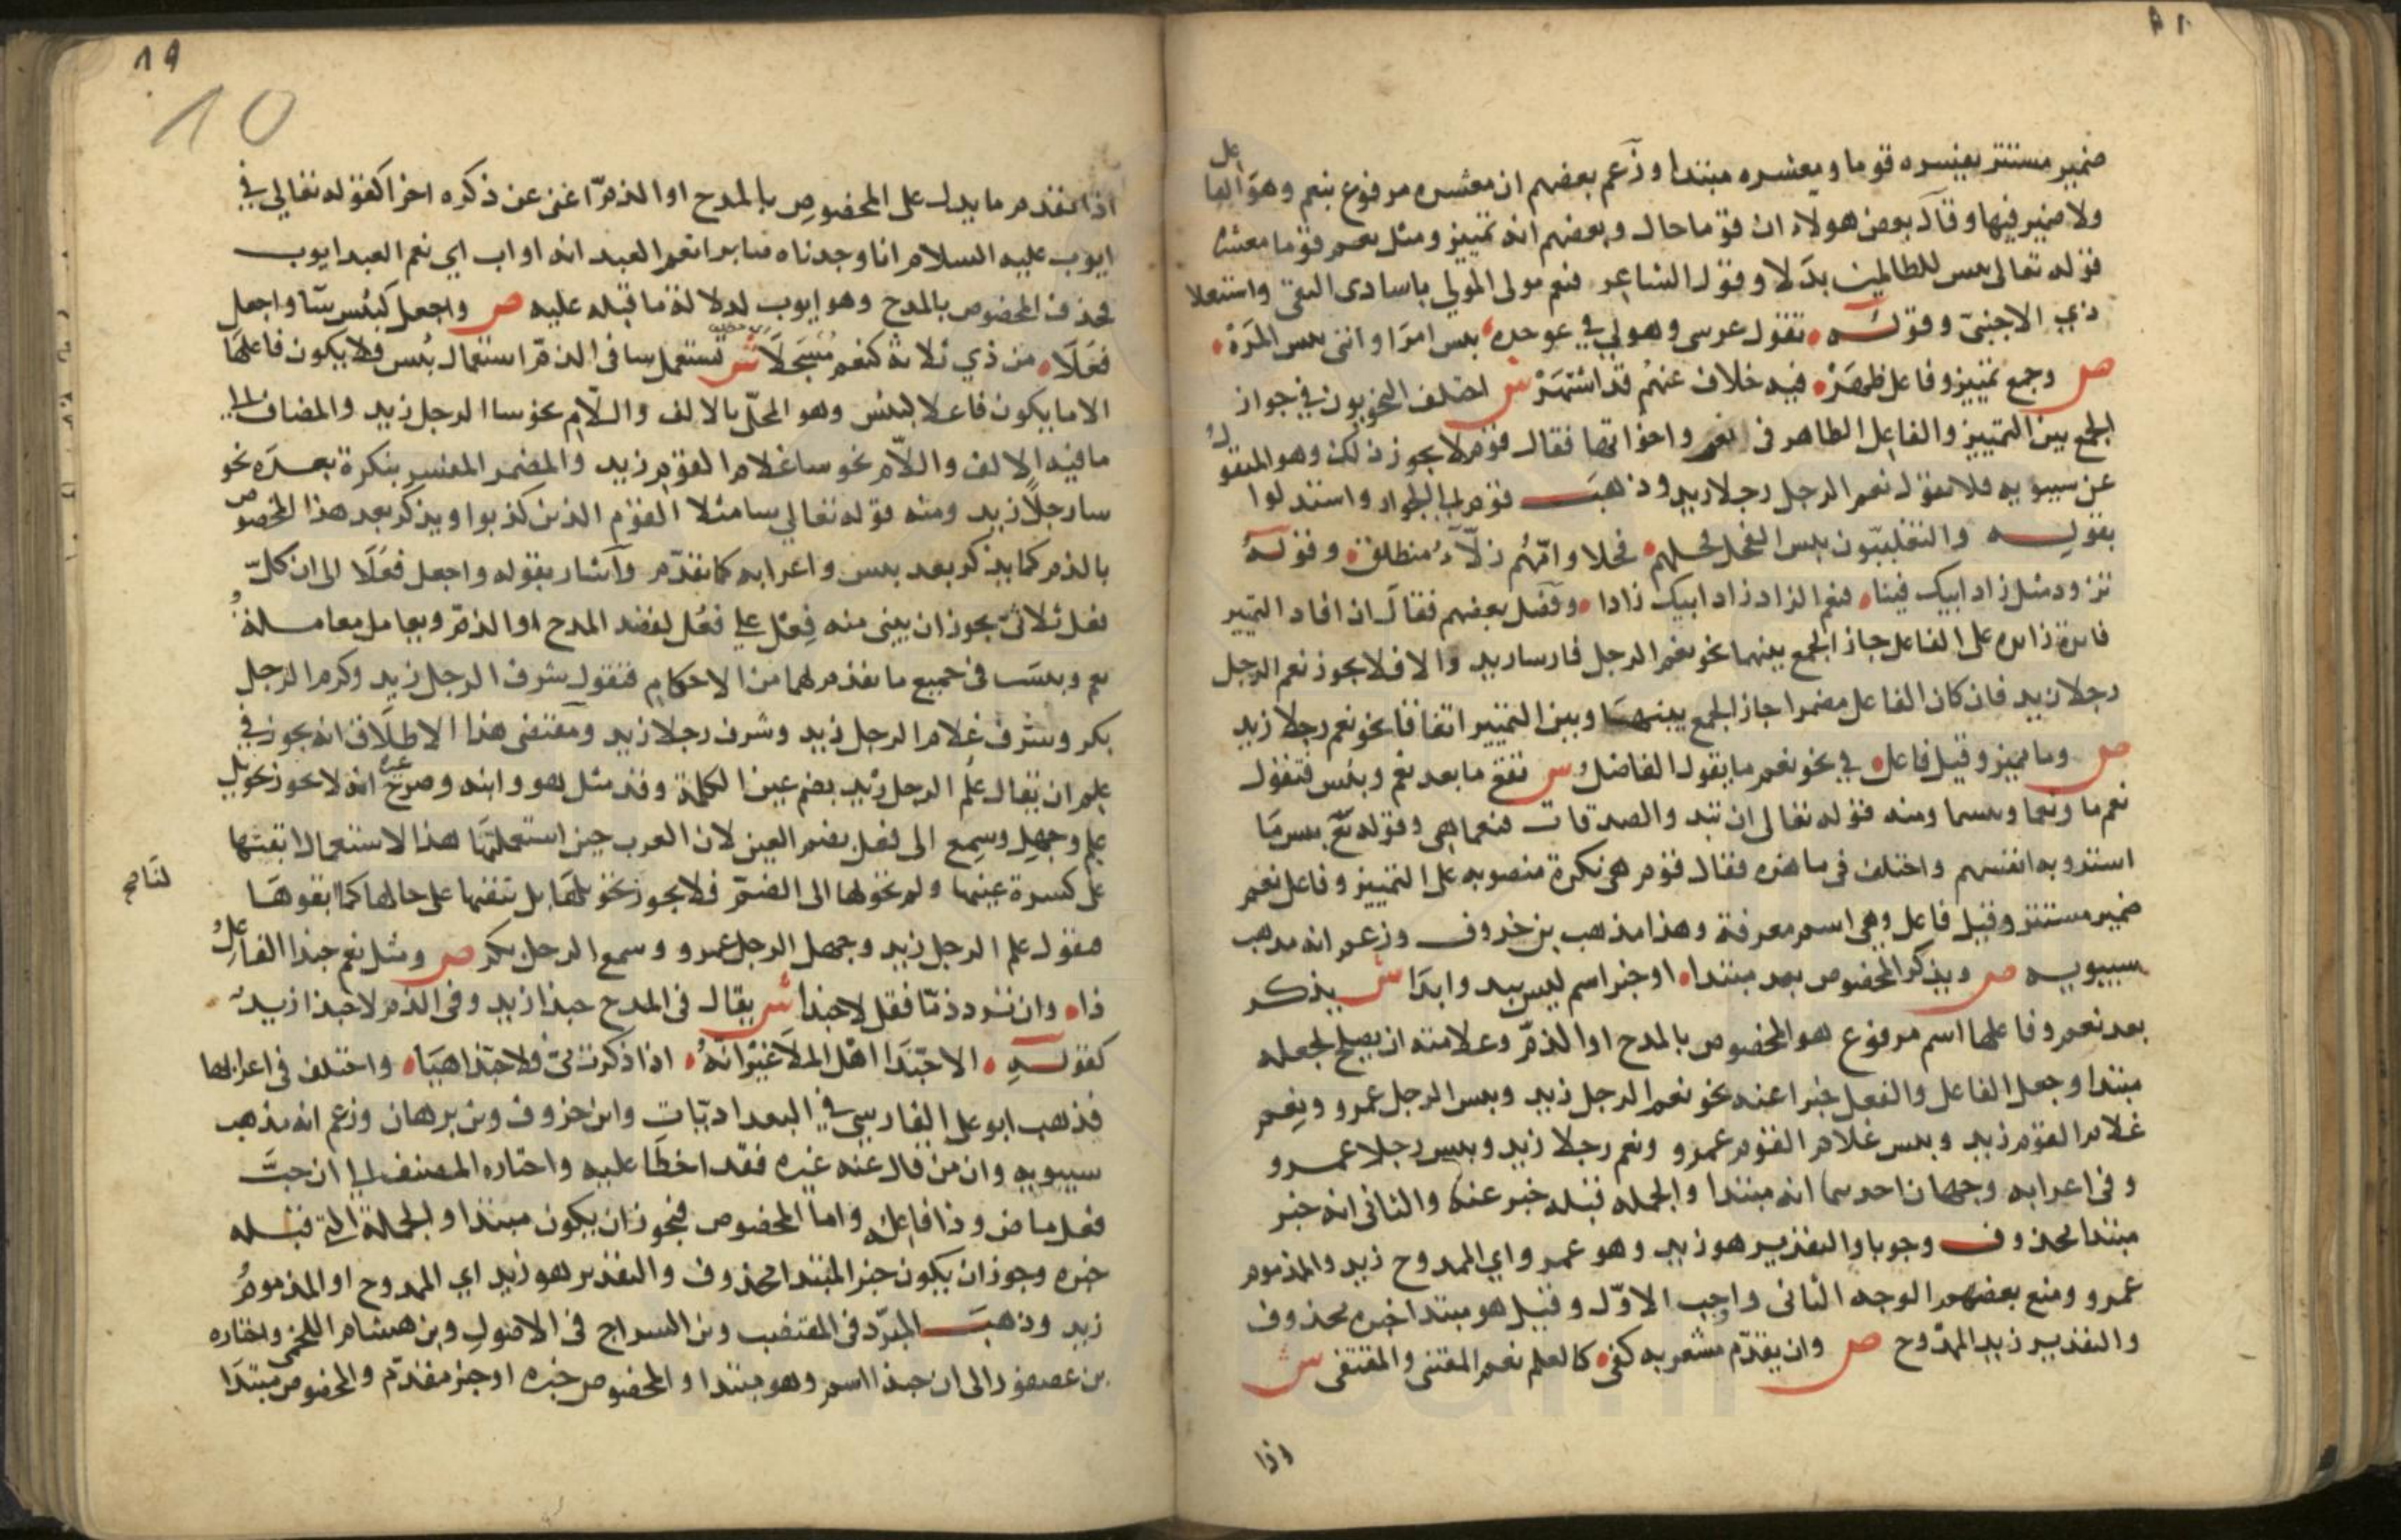 ضمير مستتر يفسره قوما ومعشره مبتدا وزعم بعضهم ان معشره مرفوع بنعم وهو الفاعل
ولا ضمير فيها وقال بعض هولاء ان قوما حال وبعضهم انه تمييز ومثل نعم قوما معشره
قوله تعالى بيس للظالمين بدلا وقول الشاعر فنعم مولى المولي باسادى
ذي الاجنبي وقوله تقول عرسى وهو لي في عومره بيس امرا وانني بيس المره
ص وجمع تمييز وفاعل ظهر فيه خلاف عنهم قد اشتهر ش اختلف النحويون في جواز
الجمع بين التمييز والفاعل الظاهر في نعم واخواتها فقال قوم لا يجوز ذلك وهو المنقول
عن سيبويه فلا تقول نعم الرجل رجلا زيد وذهب قوم الى الجواز واستدلوا
بقوله والتغلبيون بيس الفحل فحلهم فحلا وامهم زلاء منطلق وقوله
تزود مثل زاد ابيك فينا فنعم الزاد زاد ابيك زادا وفصل بعضهم فقال ان افاد التمييز
فايدة زايدة على الفاعل جاز الجمع بينهما نحو نعم الرجل فارسا زيد والا فلا يجوز نعم الرجل
رجلا زيد فان كان الفاعل مضمرا جاز الجمع بينهما وبين التمييز اتفاقا نحو نعم رجلا زيد
ص وما مميز وقيل فاعل في نحو نعم ما يقول الفاضل ش تقع ما بعد نعم وبئس فتقول
نعم ما ونعما وبيسما ومنه قوله تعالى ان تبدوا الصدقات فنعما هي وقوله تع بيس ما
اشتروا به انفسهم واختلف في ما هذه فقال قوم هي نكرة منصوبه على التمييز وفاعل نعم
ضمير مستتر وقيل فاعل وهي اسم معرفة وهذا مذهب بن خروف وزعم انه مذهب
سيبويه ص ويذكر المخصوص بعد مبتدا او خبر اسم ليس يبدو ابدا ش يذكر
بعد نعم وفاعلها اسم مرفوع هو المخصوص بالمدح او الذم وعلامته ان يصلح لجعله
مبتدا وجعل الفاعل والفعل خبرا عنه نحو نعم الرجل زيد وبيس الرجل عمرو ونعم
غلام القوم زيد وبيس غلام القوم عمرو ونعم رجلا زيد وبيس رجلا عمرو
وفي اعرابه وجهان احدهما انه مبتدا والجمله قبله خبر عنه والثاني انه خبر
مبتدا محذوف وجوبا والتقدير هو زيد وهو عمرو اي الممدوح زيد والمذموم
عمرو ومنع بعضهم الوجه الثاني واوجب الاول وقيل هو مبتدا خبره محذوف
والتقدير زيد الممدوح ص وان يقدم مشعر به كفى كالعلم نعم المقتنى والمقتفى ش
اذا
١٩
10
اذا تقدم ما يدل على المخصوص بالمدح او الذم اغنى عن ذكره اخرا كقوله تعالي في
ايوب عليه السلام انا وجدناه صابرا نعم العبد انه اواب اي نعم العبد ايوب
فحذف المخصوص بالمدح وهو ايوب لدلالة ما قبله عليه ص واجعل كبئس ساء واجعل
فعلا من ذي ثلاثة كنعم مسجلا ش تستعمل سا في الذم استعمال بئس فلا يكون فاعلها
الا ما يكون فاعلا لبئس وهو المحلى بالالف واللام نحو سا الرجل زيد والمضاف الى
ما فيه الالف واللام نحو سا غلام القوم زيد والمضمر المفسر بنكرة بعده نحو
سا رجلا زيد ومنه قوله تعالي سا مثلا القوم الذين كذبوا ويذكر بعد هذا المخصوص
بالذم كما يذكر بعد بيس واعرابه كما تقدم واشار بقوله واجعل فعلا الى ان كل
فعل ثلاثي يجوز ان يبنى منه فعل على فعل لقصد المدح او الذم ويعامل معاملة
نعم وبيس في جميع ما تقدم لهما من الاحكام فتقول شرف الرجل زيد وكرم الرجل
بكر وشرف غلام الرجل زيد وشرف رجلا زيد ومقتضى هذا الاطلاق انه يجوز في
علم ان يقال علم الرجل زيد بضم عين الكلمة وقد مثل هو وابنه وصرح غيره انه لا يجوز تحويل
علم وجهل وسمع الى فعل بضم العين لان العرب حين استعملتها هذا الاستعمال ابقتها
على كسرة عينها ولم تحولها الى الضم فلا يجوز لنا تحويلها بل نبقيها على حالها كما ابقوها
فنقول علم الرجل زيد وجهل الرجل عمرو وسمع الرجل بكر ص ومثل نعم حبذا الفاعل
ذا وان ترد ذما فقل لا حبذا ش يقال في المدح حبذا زيد وفي الذم لا حبذا زيد
كقوله الا حبذا اهل الملا غير انه اذا ذكرت مي فلا حبذا هيا واختلف في اعرابها
فذهب ابو على الفارسي في البغداديات وابن خروف وبن برهان وزعم انه مذهب
سيبويه وان من قال عنه غيره فقد اخطا عليه واختاره المصنف الى ان حب
فعل ماض وذا فاعله واما المخصوص فيجوز ان يكون مبتدا والجملة التي قبله
خبره وجوز ان يكون خبر المبتدا محذوف والتقدير هو زيد اي الممدوح او المذموم
زيد وذهب المبرد في المقتضب وبن السراج في الاصول وبن هشام اللخمي واختاره
بن عصفور الى ان حبذا اسم وهو مبتدا والمخصوص خبره او خبر مقدم والمخصوص مبتدا